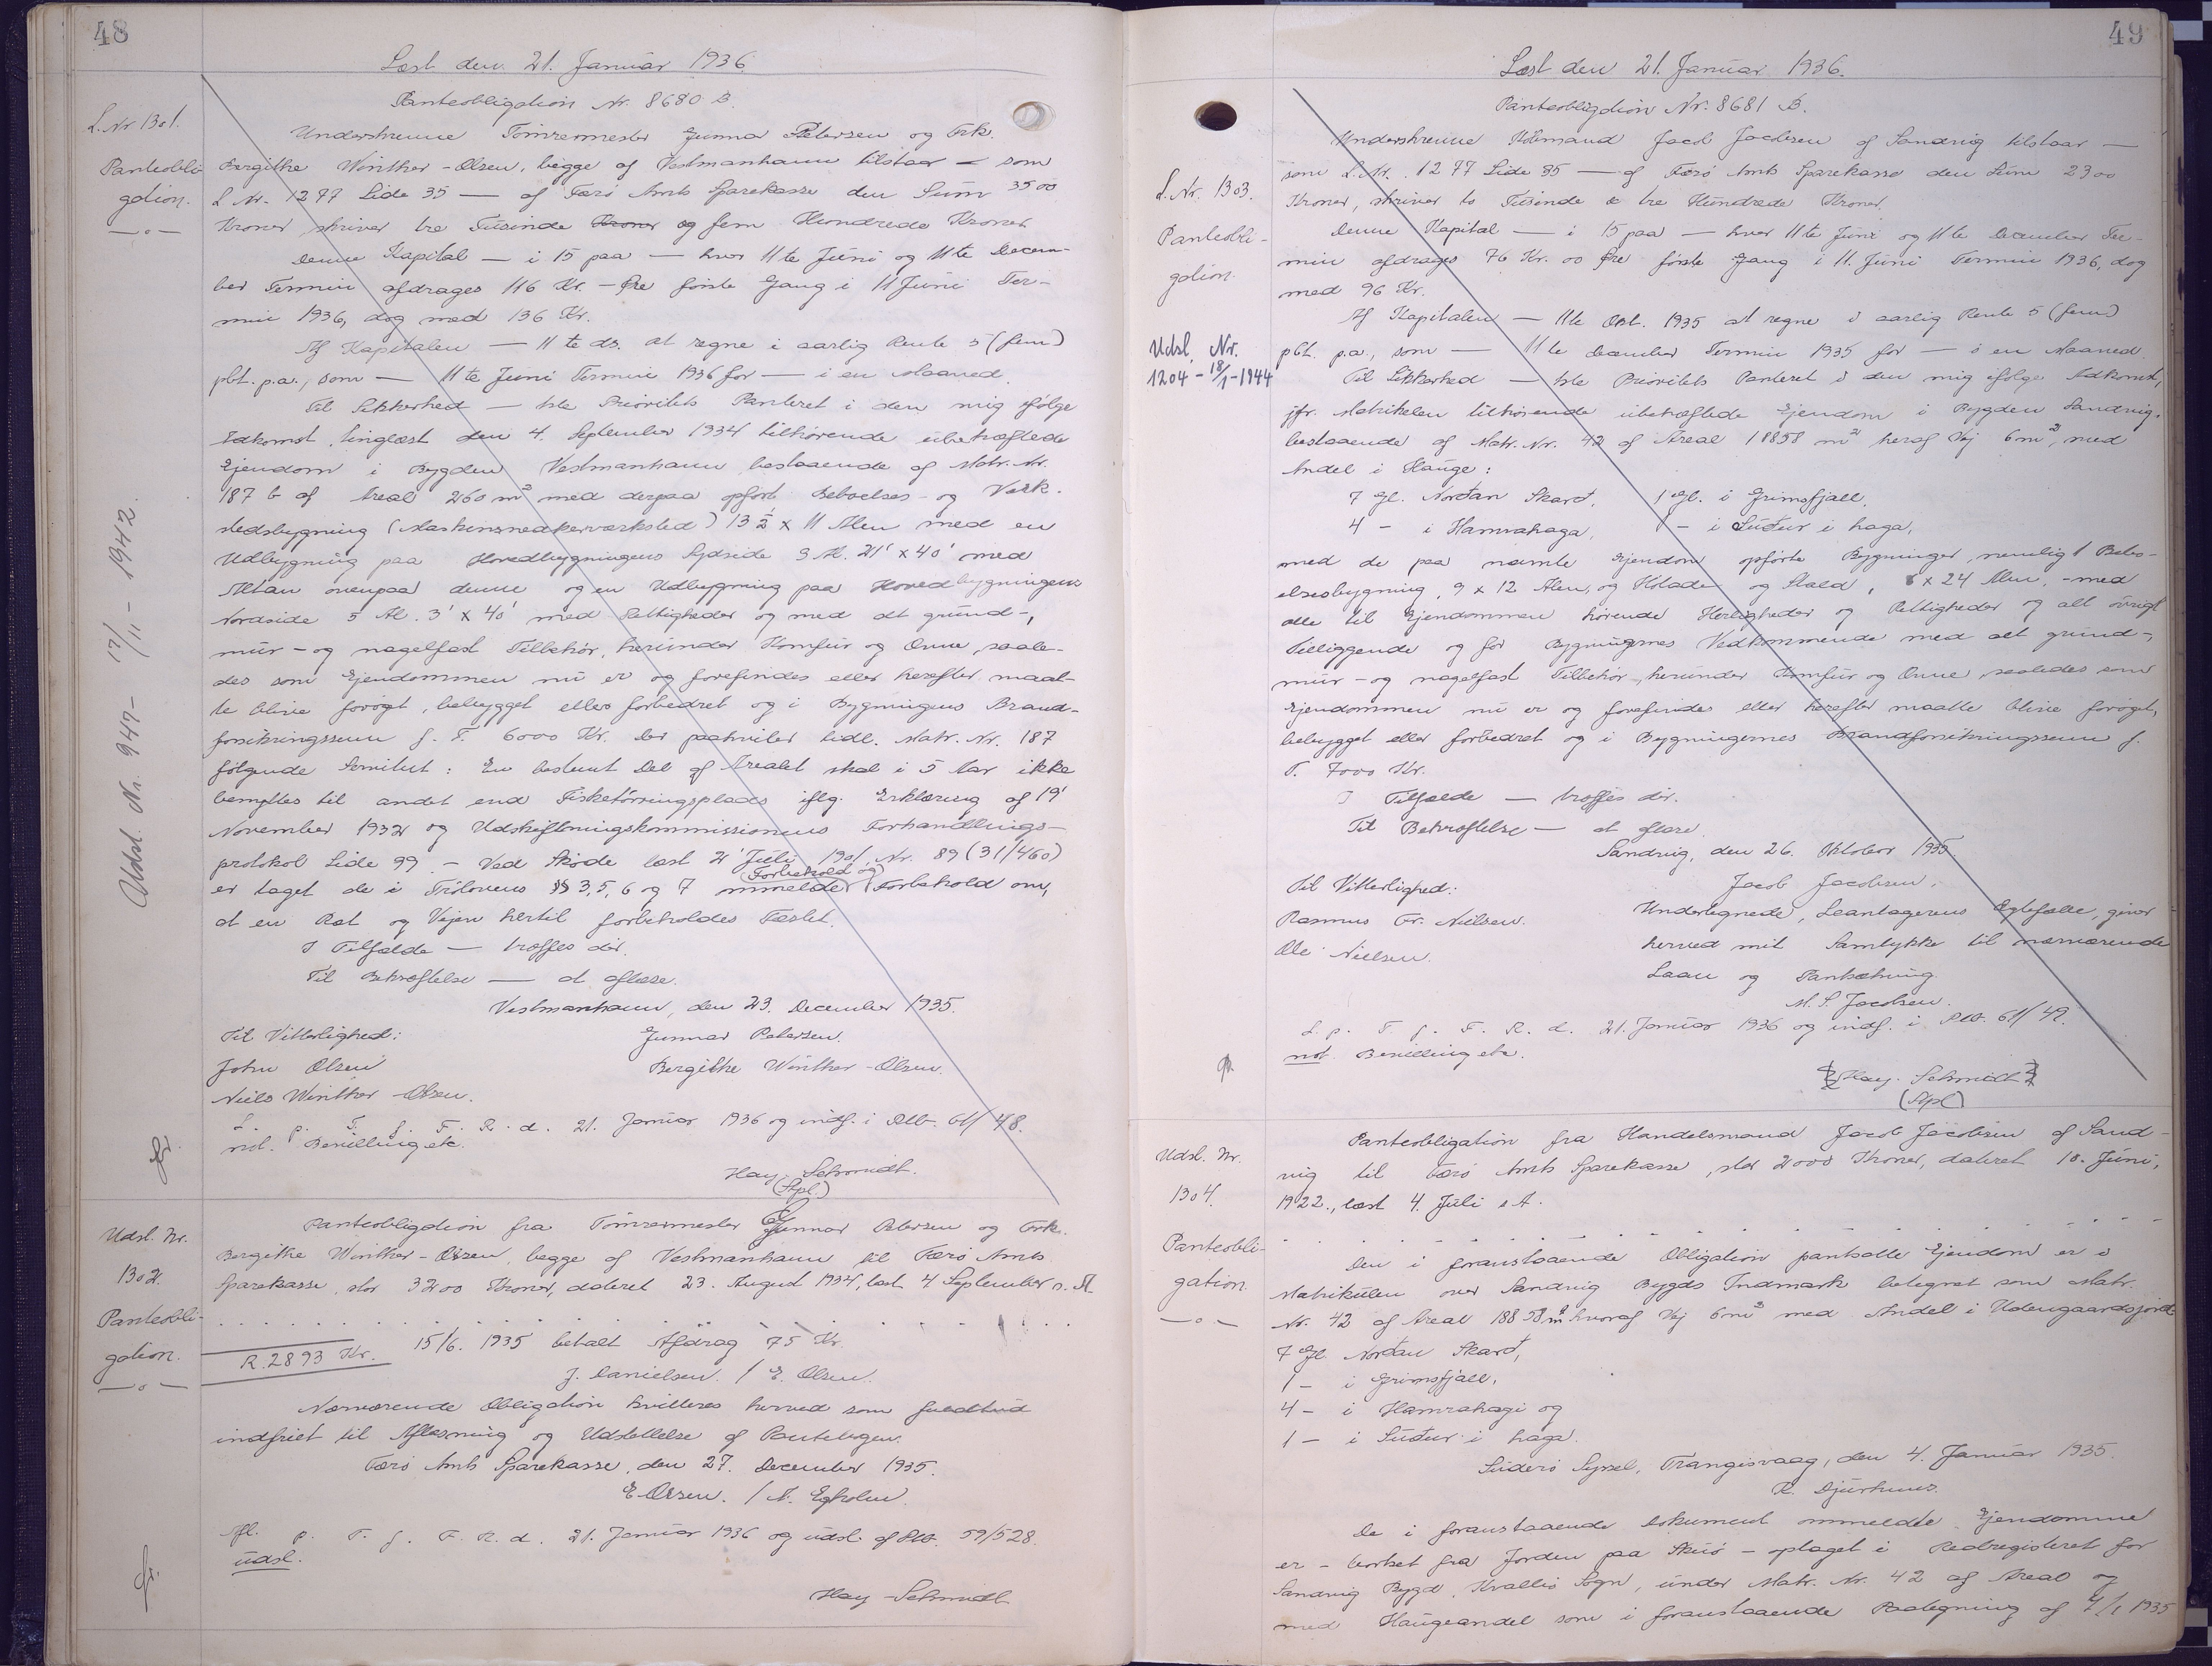 48
Læst den 21. Januar 1936
Panteobligation Nr. 8680 B.
L. Nr 1301.
Panteobli-
gation.
Underskrevne Tömrermester Gunnar Petersen og Frk.
Bergithe Winther-Olsen, begge af Vestmanhavn tilstaar — som
L Nr. 1277 Side 35 — af Færö Amts Sparekasse den Sum 3500
Kroner, skriver tre Tusinde Kroner og fem Hundrede Kroner
Denne Kapital — i 15 paa — hver 11te Juni og 11te Decem-
ber Termin afdrages 116 Kr. — Öre förste Gang i 11 Juni Ter-
min 1936, dog med 136 Kr.
Af Kapitalen — 11te ds. at regne i aarlig Rente 5 (fem)
pCt. p.a., som — 11te Juni Termin 1936 for — i en Maaned.
Til Sikkerhed — 1ste Prioritets Panteret i den mig ifölge
Adkomst, tinglæst den 4. September 1934 tilhörende ubehæftede
Ejendom i Bygden Vestmanhavn bestaaende af Matr. Nr.
187 b af Areal 260 m² med derpaa opfört Beboelses- og Værk-
stedsbygning (Maskinsnedkerværksted) 13 ½ x 11 Alen med en
Udbygning paa Hovedbygningens Sydside 3 Al. 21' x 40' med
Altan ovenpaa denne og en Udbygning paa Hovedbygningens
Nordside 5 Al. 3' x 40' med Rettigheder og med alt grund-,
mur- og nagelfast Tilbehör, herunder Komfur og Ovne, saale-
des som Ejendommen nu er og forefindes eller herefter maat-
te blive forögt, bebygget eller forbedret og i Bygningens Brand-
forsikringssum f. T. 6000 Kr. Der paahviler tidl. Matr. Nr. 187
fölgende Servitut: En bestemt Del af Arealet skal i 5 Aar ikke
benyttes til andet end Fisketörringsplads iflg. Erklæring af 19'
November 1932 og Udskiftningskommissionens Forhandlings-
protokol Side 99. — Ved Sköde læst 2' Juli 1901, Nr. 89 (31/460)
er taget de i Frilovens §§ 3, 5, 6 og 7 ommeldte (Forbehold og) Forbehold om,
at en Ret og Vejen hertil forbeholdes Fæstet.
I Tilfælde — træffes dér.
Til Bekræftelse — at aflæse.
Vestmanhavn, den 23. December 1935.
Til Vitterlighed: Gunnar Petersen.
John Olsen Bergithe Winther-Olsen.
Niels Winther Olsen.
L. p. T. f. F. R. d. 21. Januar 1936 og indf. i Pltb. 61/48.
not. Bevilling etc.
Hay-Schmidt.
(Stpl.)
Udsl. Nr. 947 - 17/11 - 1942.
Udsl. Nr.
1302.
Panteobli-
gation.
Panteobligation fra Tömrermester Gunnar Petersen og Frk.
Bergithe Winther-Olsen, begge af Vestmanhavn til Færö Amts
Sparekasse, stor 3200 Kroner, dateret 23. August 1934, læst 4 September s. A.
R. 2893 Kr. 15/6. 1935 betalt Afdrag 75 Kr.
J. Danielsen. / E. Olsen.
Nærværende Obligation kvitteres herved som fuldtud
indfriet til Aflæsning og Udslettelse af Pantebogen.
Færö Amts Sparekasse, den 27. December 1935.
E Olsen. / A. Egholm.
Afl. p. T. f. F. R. d. 21. Januar 1936 og udsl. af Pltb. 59/528.
udsl.
Hay-Schmidt
49
Læst den 21. Januar 1936.
Panteobligation Nr. 8681 B.
L. Nr. 1303.
Panteobli-
gation
Udsl. Nr.
1204 - 18/1 - 1944
Underskrevne Købmand Jacob Jacobsen af Sandvig tilstaar —
som L. Nr. 1277 Side 35 — af Færö Amts Sparekasse den Sum 2300
Kroner, skriver to Tusinde & tre Hundrede Kroner.
Denne Kapital — i 15 paa — hver 11te Juni og 11te December Ter-
min afdrages 76 Kr. 00 Øre förste Gang i 11. Juni Termin 1936, dog
med 96 Kr.
Af Kapitalen — 11te Okt. 1935 at regne i aarlig Rente 5 (fem)
pCt. p.a., som — 11te December Termin 1935 for — i en Maaned.
Til Sikkerhed — 1ste Prioritets Panteret i den mig ifölge Adkomst,
jfr. Matrikelen tilhörende ubehæftede Ejendom i Bygden Sandvig.
bestaaende af Matr. Nr. 42 af Areal 18858 m² heraf Vej 6 m², med
Andel i Hauge:
7 Gl. Norðan Skarð, 1 Gl. i Grimsfjall,
4 - i Hamrahaga, 1 - i Suður i haga,
med de paa nævnte Ejendom opförte Bygninger, nemlig 1 Bebo-
elsesbygning, 9 x 12 Alen, og Hölade og Stald, 8 x 24 Alen, - med
alle til Ejendommen hörende Herligheder og Rettigheder og alt övrigt
Tilliggende og for Bygningernes Vedkommende med alt grund-,
mur- og nagelfast Tilbehör, herunder Komfur og Ovne, saaledes som
Ejendommen nu er og forefindes eller herefter maatte blive forögt,
bebygget eller forbedret og i Bygningernes Brandforsikringssum f.
T. 7000 Kr.
I Tilfælde — træffes dér.
Til Bekræftelse — at aflæse.
Sandvig, den 26. Oktober 1935.
Til Vitterlighed: Jacob Jacobsen.
Rasmus Fr. Nielsen. Undertegnede, Laantagerens Ægtefælle, giver
Ole Nielsen. herved mit Samtykke til nærværende
Laan og Pantsætning.
M. S. Jacobsen.
L. p. T. f. F. R. d. 21. Januar 1936 og indf. i Pltb. 61/49.
not. Bevilling etc.
Hay-Schmidt
(Stpl)
Udsl. Nr.
1304.
Panteobli-
gation.
Panteobligation fra Handelsmand Jacob Jacobsen af Sand-
vig til Færö Amts Sparekasse, stor 2000 Kroner, dateret 10. Juni,
1922., læst 4. Juli s. A.
Den i foranstaaende Obligation pantsatte Ejendom er i
Matrikulen over Sandvig Bygds Indmark betegnet som Matr.
Nr. 42 af Areal 18858 m² hvoraf Vej 6 m² med Andel i Udengaardsjord:
7 Gl. Norðan Skarð,
1 - i Grimsfjall,
4 - i Hamrahagi og
1 - i Suður i haga.
Suderö Syssel, Trangisvaag, den 4. Januar 1935.
R. Djurhuus.
De i foranstaaende Dokument ommeldte Ejendomme
er - bortset fra Jorden paa Skuö - optaget i Realregisteret for
Sandvig Bygd, Hvalbø Sogn, under Matr. Nr. 42 af Areal og
med Haugeandel som i foranstaaende Paategning af 4/1 1935